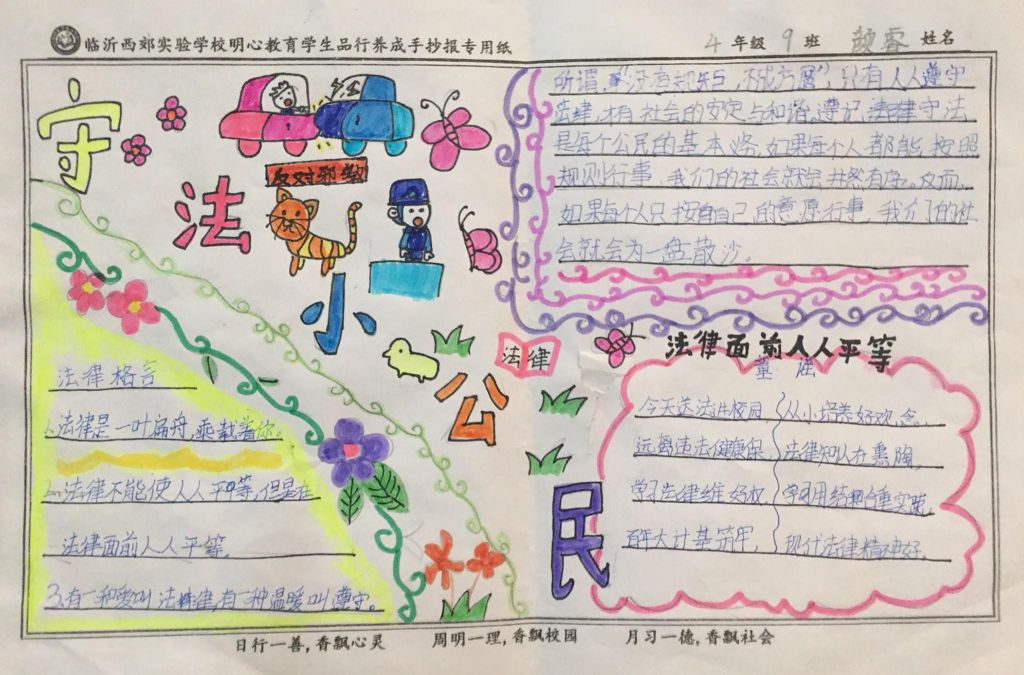 临沂西郊实验学校明心教育学生品行养成手抄报专用纸
4年级 9班 睿 姓名
守法小公民
反对邪教
法律
所谓"没有规矩,不成方圆",只有人人遵守
法律,才有社会的安定与和谐,遵记法律守法
是每个公民的基本 务,如果每个人都能按照
规则行事,我们的社会就会井然有序。反而,
如果每个人只按自自己的意愿行事,我们的社
会就会为一盘散沙。
法律格言
1.法律是一叶扁舟,乘载着你。
2.法律不能使人人平等,但是在
法律面前人人平等。
3.有一种爱叫法律,有一种温暖叫遵守。
法律面前人人平等
童谣
今天送法进校园,从小培养好观念,
远离违法健康保 法律知识在熏陶,
学习法律维 权,学习用结合重实践,
百年大计基筑牢,现代法律精神好,
日行一善,香飘心灵 周明一理,香飘校园 月习一德,香飘社会